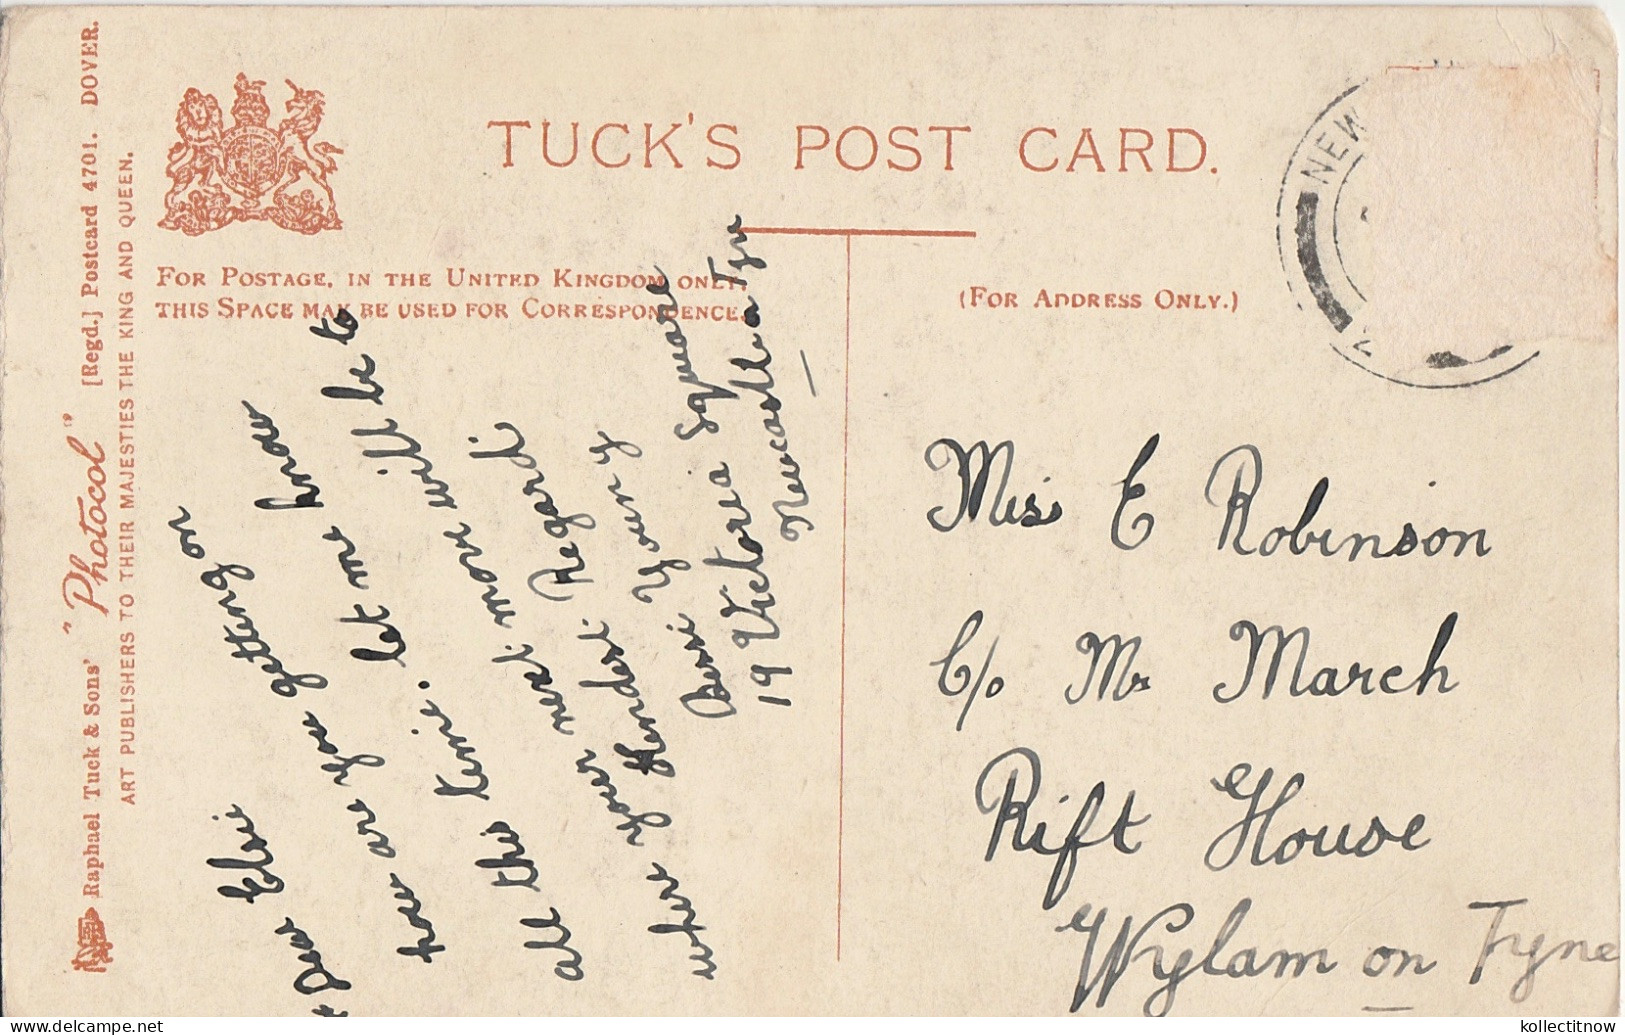 TUCK'S POST CARD.
FOR POSTAGE, IN THE UNITED KINGDOM ONLY,
THIS SPACE MAY BE USED FOR CORRESPONDENCE.
(FOR ADDRESS ONLY.)
Raphael Tuck & Sons' "Photocol" [Regd.] Postcard 4701. DOVER.
ART PUBLISHERS TO THEIR MAJESTIES THE KING AND QUEEN.
NEW
Dear Elsie
how are you getting on
let me know
this time. will be to
all this move
next Regards
where your
Young
19 Victoria Square
Newcastle on Tyne
Miss E Robinson
C/o Mr March
Rift House
Wylam on Tyne
kollectitnow